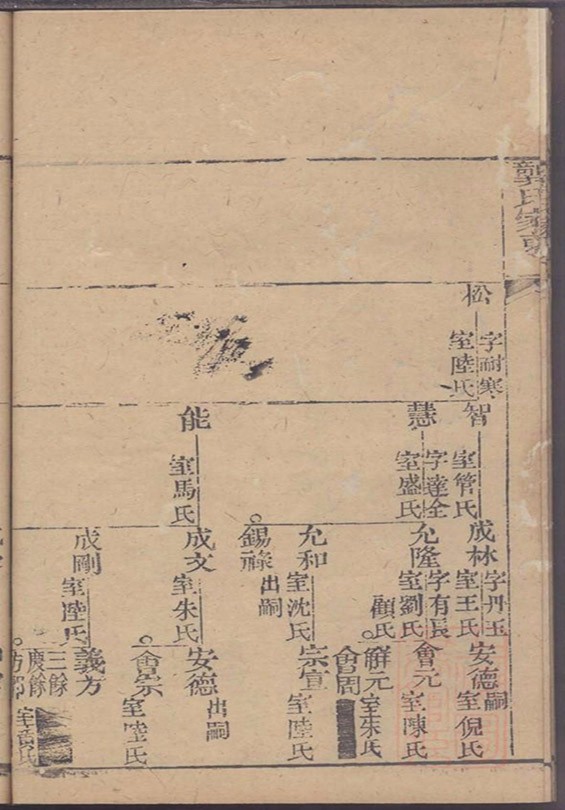 龔氏家
松
字耐寒
室陸氏
智
室管氏
慧
字達全
室盛氏
能
室馬氏
成林
字丹玉
室王氏
允隆
字有長
室劉氏
顧氏
允和
室沈氏
錫祿
出嗣
成文
室朱氏
成剛
室陸氏
安德
嗣
室倪氏
會元
室陳氏
解元
室朱氏
會周
宗宣
室陸氏
安德
出嗣
會宗
室陸氏
義方
三餘
慶餘